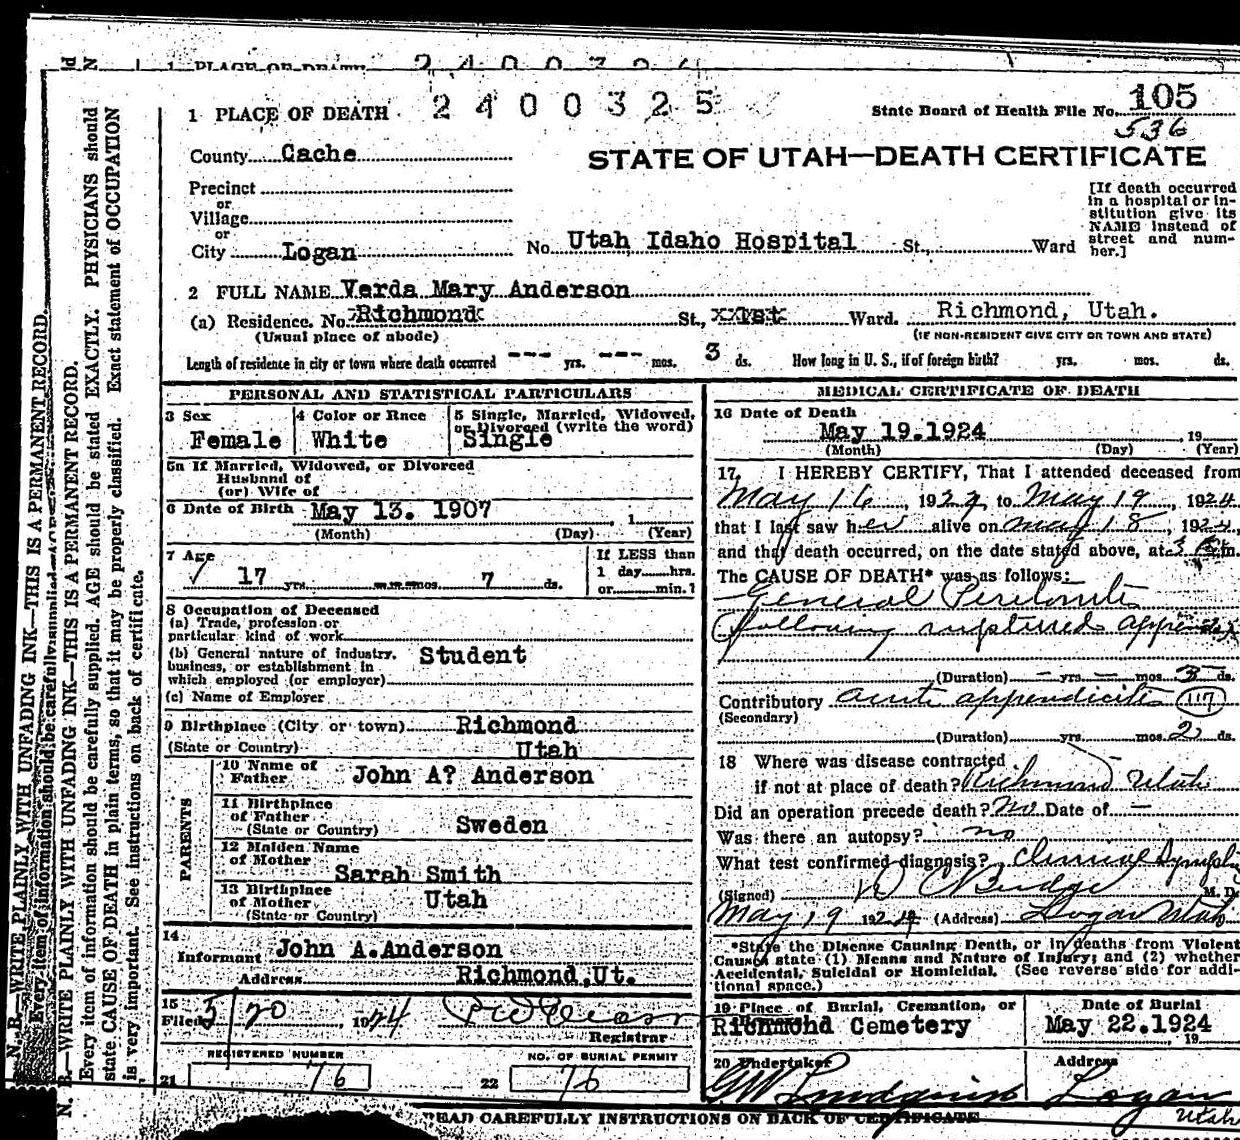 1 PLACE OF DEATH
2400325
State Board of Health File No. 105
536
County Cache
STATE OF UTAH—DEATH CERTIFICATE
Precinct
or
Village
or
City Logan No. Utah Idaho Hospital St., Ward
[If death occurred
in a hospital or in-
stitution give its
NAME instead of
street and num-
ber.]
2 FULL NAME Verda Mary Anderson
(a) Residence. No. Richmond St., 1st Ward. Richmond, Utah.
(Usual place of abode) (IF NON-RESIDENT GIVE CITY OR TOWN AND STATE)
Length of residence in city or town where death occurred --- yrs. --- mos. 3 ds. How long in U. S., if of foreign birth? yrs. mos. ds.
PERSONAL AND STATISTICAL PARTICULARS
3 Sex Female
4 Color or Race White
5 Single, Married, Widowed,
or Divorced (write the word)
Single
5a If Married, Widowed, or Divorced
Husband of
(or) Wife of
6 Date of Birth May 13. 1907 , 1
(Month) (Day) (Year)
7 Age
✓ 17 yrs. mos. 7 ds.
If LESS than
1 day hrs.
or min.?
8 Occupation of Deceased
(a) Trade, profession or
particular kind of work
(b) General nature of industry,
business, or establishment in
which employed (or employer)
Student
(c) Name of Employer
9 Birthplace (City or town) Richmond
(State or Country) Utah
PARENTS
10 Name of
Father John A? Anderson
11 Birthplace
of Father
(State or Country) Sweden
12 Maiden Name
of Mother
Sarah Smith
13 Birthplace
of Mother Utah
(State or Country)
14
Informant John A.Anderson
Address Richmond,Ut.
15
Filed 5/20, 1924
Registrar
REGISTERED NUMBER
21 76
NO. OF BURIAL PERMIT
22 76
MEDICAL CERTIFICATE OF DEATH
16 Date of Death
May 19.1924 , 19
(Month) (Day) (Year)
17 I HEREBY CERTIFY, That I attended deceased from
May 16, 1924, to May 19, 1924
that I last saw her alive on May 18, 1924,
and that death occurred, on the date stated above, at 3 m.
The CAUSE OF DEATH* was as follows:
General Peritonitis
following ruptured appendix
(Duration) — yrs. — mos. 3 ds.
Contributory acute appendicitis 117
(Secondary)
(Duration) yrs. mos. 2 ds.
18 Where was disease contracted
if not at place of death? Richmond Utah
Did an operation precede death? No Date of —
Was there an autopsy? no
What test confirmed diagnosis? Clinical Symptoms
(Signed) D C Budge M. D.
May 19 1924 (Address) Logan Utah
*State the Disease Causing Death, or in deaths from Violent
Causes state (1) Means and Nature of Injury; and (2) whether
Accidental, Suicidal or Homicidal. (See reverse side for addi-
tional space.)
19 Place of Burial, Cremation, or
Richmond Cemetery
Date of Burial
May 22.1924
, 19
20 Undertaker
Address
Logan
Utah
READ CAREFULLY INSTRUCTIONS ON BACK OF CERTIFICATE
N. B.—WRITE PLAINLY WITH UNFADING INK—THIS IS A PERMANENT RECORD.
N. B.—WRITE PLAINLY WITH UNFADING INK—THIS IS A PERMANENT RECORD.
Every item of information should be carefully supplied. AGE should be stated EXACTLY. PHYSICIANS should
state CAUSE OF DEATH in plain terms, so that it may be properly classified. Exact statement of OCCUPATION
is very important. See instructions on back of certificate.